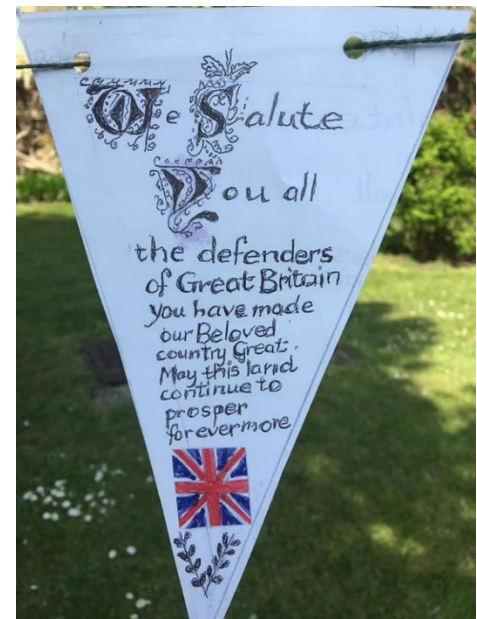 We Salute
You all
the defenders
of Great Britain
you have made
our Beloved
country Great.
May this land
continue to
prosper
forevermore